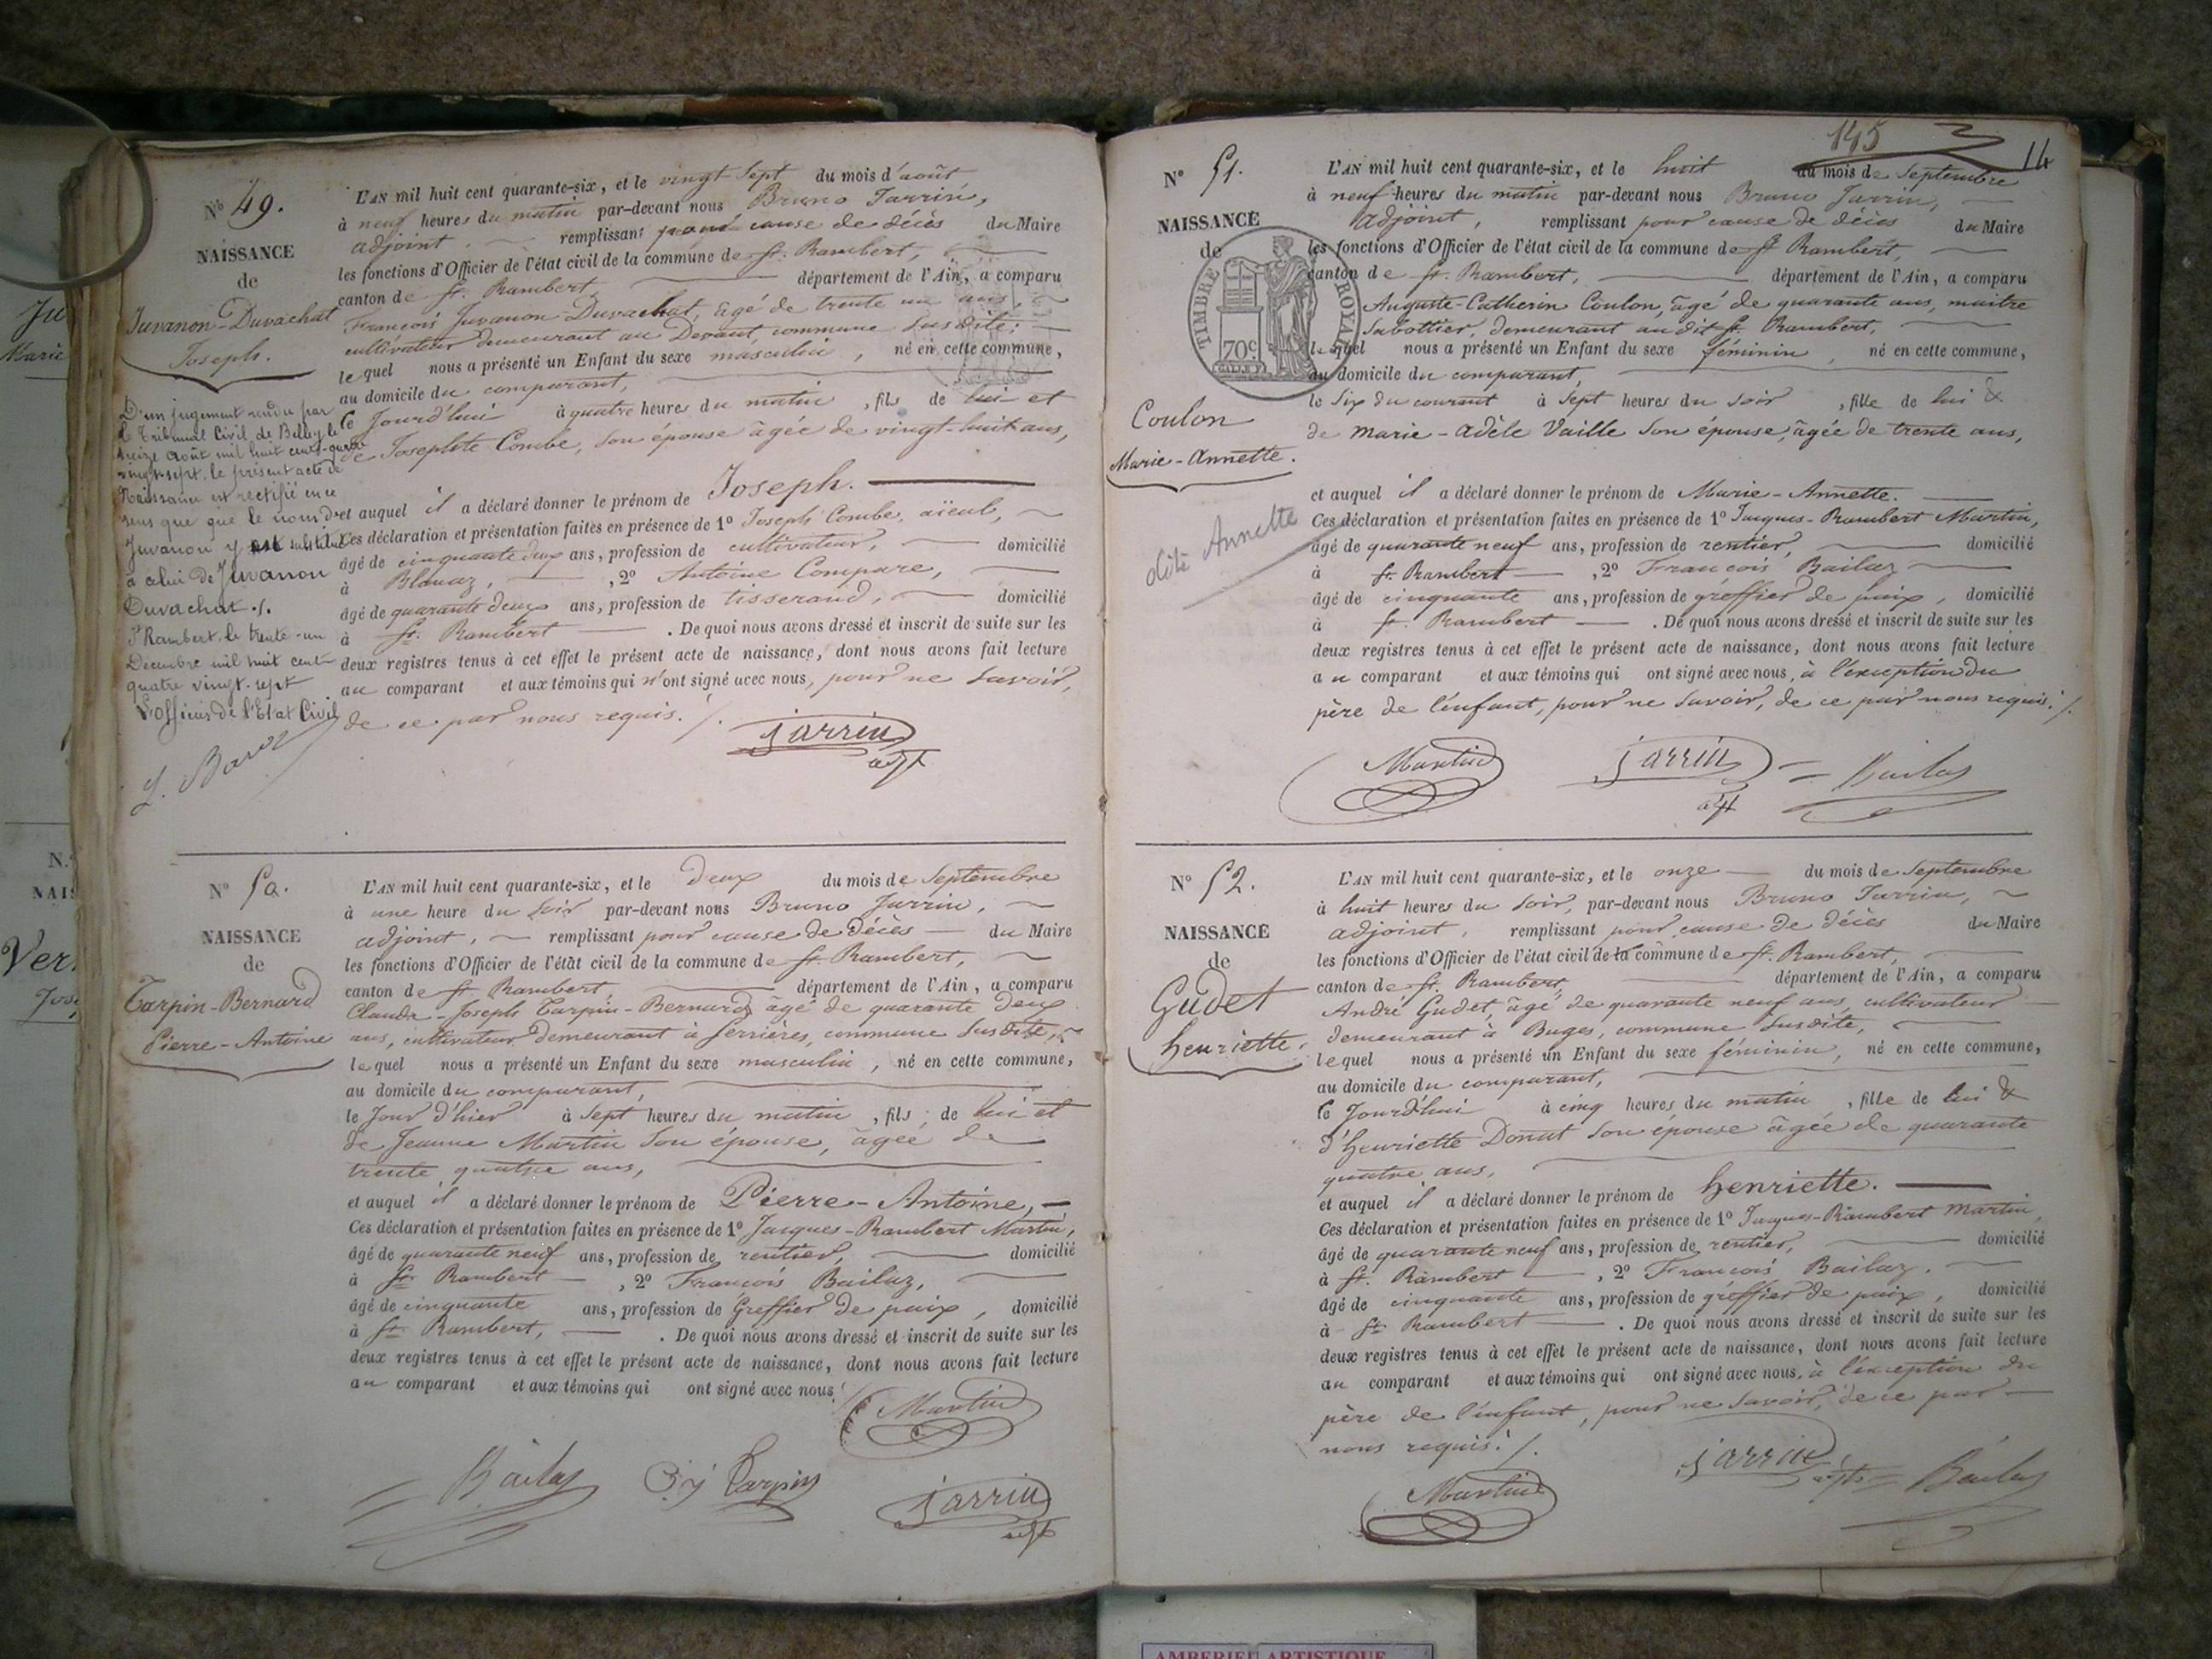 Nº 49.
NAISSANCE
de
Juvanon-Duvachat
Joseph.
D'un jugement rendu par
le Tribunal Civil de Belley le
seize août mil huit cent quatre
vingt-sept, le présent acte de
Naissance est rectifié en ce
sens que que le nom de
Juvanon y est substitué
à celui de Juvanon
Duvachat ./.
St Rambert, le trente-un
Décembre mil huit cent
quatre vingt-sept
L'officier de l'Etat Civil
L'AN mil huit cent quarante-six, et le vingt Sept du mois d'août
à neuf heures du matin par-devant nous Bruno Jarrin,
adjoint, remplissant pour cause de décès du Maire
les fonctions d'Officier de l'état civil de la commune de St. Rambert,
canton de St. Rambert département de l'Ain, a comparu
François Juvanon-Duvachat, âgé de trente un ans,
cultivateur demeurant au Devant, commune Susdite;
lequel nous a présenté un Enfant du sexe masculin, né en cette commune,
au domicile du comparant,
le Jourd'hui à quatre heures du matin, fils de lui et
de Josephte Combe, son épouse âgée de vingt-huit ans,
et auquel il a déclaré donner le prénom de Joseph.
Ces déclaration et présentation faites en présence de 1º Joseph Combe, aïeul,
âgé de cinquante deux ans, profession de cultivateur, domicilié
à Blanaz, , 2º Antoine Compare,
âgé de quarante deux ans, profession de tisserand, domicilié
à St. Rambert . De quoi nous avons dressé et inscrit de suite sur les
deux registres tenus à cet effet le présent acte de naissance, dont nous avons fait lecture
au comparant et aux témoins qui n'ont signé avec nous, pour ne Savoir,
de ce par nous requis ./.
Jarrin
adjt
Nº 50.
NAISSANCE
de
Tarpin-Bernard
Pierre-Antoine
L'AN mil huit cent quarante-six, et le deux du mois de Septembre
à une heure du Soir par-devant nous Bruno Jarrin,
adjoint, remplissant pour cause de décès du Maire
les fonctions d'Officier de l'état civil de la commune de St. Rambert,
canton de St Rambert département de l'Ain, a comparu
Claude-Joseph Tarpin-Bernard âgé de quarante deux
ans, cultivateur demeurant à Serrières, commune Susdite,
lequel nous a présenté un Enfant du sexe masculin, né en cette commune,
au domicile du comparant,
le Jour d'hier à Sept heures du matin, fils de lui et
de Jeanne Martin Son épouse, âgée de
trente quatre ans,
et auquel il a déclaré donner le prénom de Pierre-Antoine,
Ces déclaration et présentation faites en présence de 1º Jacques-Rambert Martin,
âgé de quarante neuf ans, profession de rentier, domicilié
à St. Rambert , 2º François Bailaz,
âgé de cinquante ans, profession de Greffier de paix, domicilié
à St Rambert, . De quoi nous avons dressé et inscrit de suite sur les
deux registres tenus à cet effet le présent acte de naissance, dont nous avons fait lecture
au comparant et aux témoins qui ont signé avec nous ./.
Martin
Bailaz Tarpin Jarrin
adjt
145
14
Nº 51.
NAISSANCE
de
TIMBRE ROYAL
70c
Coulon
Marie-Annette.
dite Annette
L'AN mil huit cent quarante-six, et le huit du mois de Septembre
à neuf heures du matin par-devant nous Bruno Jarrin,
adjoint, remplissant pour cause de décès du Maire
les fonctions d'Officier de l'état civil de la commune de St Rambert,
canton de St. Rambert, département de l'Ain, a comparu
Auguste-Catherin Coulon, âgé de quarante ans, maitre
Sabottier, demeurant audit St. Rambert,
lequel nous a présenté un Enfant du sexe féminin, né en cette commune,
au domicile du comparant,
le Six du courant à Sept heures du Soir, fille de lui &
de Marie-Adèle Vaille Son épouse, âgée de trente ans,
et auquel il a déclaré donner le prénom de Marie-Annette.
Ces déclaration et présentation faites en présence de 1º Jacques-Rambert Martin,
âgé de quarante neuf ans, profession de rentier, domicilié
à St. Rambert , 2º François Bailaz
âgé de cinquante ans, profession de gréffier de paix, domicilié
à St. Rambert . De quoi nous avons dressé et inscrit de suite sur les
deux registres tenus à cet effet le présent acte de naissance, dont nous avons fait lecture
au comparant et aux témoins qui ont signé avec nous, à l'exception du
père de l'enfant, pour ne Savoir, de ce par nous requis ./.
Martin Jarrin Bailaz
adjt
Nº 52.
NAISSANCE
de
Gudet
henriette.
L'AN mil huit cent quarante-six, et le onze du mois de Septembre
à huit heures du Soir, par-devant nous Bruno Jarrin,
adjoint, remplissant pour cause de décès du Maire
les fonctions d'Officier de l'état civil de la commune de St. Rambert,
canton de St. Rambert, département de l'Ain, a comparu
André Gudet, âgé de quarante neuf ans, cultivateur
demeurant à Buges, commune Susdite,
lequel nous a présenté un Enfant du sexe féminin, né en cette commune,
au domicile du comparant,
le Jourd'hui à cinq heures du matin, fille de lui &
d'henriette Donat Son épouse âgée de quarante
quatre ans,
et auquel il a déclaré donner le prénom de henriette.
Ces déclaration et présentation faites en présence de 1º Jacques-Rambert Martin,
âgé de quarante neuf ans, profession de rentier, domicilié
à St. Rambert , 2º François Bailaz,
âgé de cinquante ans, profession de gréffier de paix, domicilié
à St Rambert . De quoi nous avons dressé et inscrit de suite sur les
deux registres tenus à cet effet le présent acte de naissance, dont nous avons fait lecture
au comparant et aux témoins qui ont signé avec nous, à l'exception du
père de l'enfant, pour ne Savoir, de ce par
nous requis ./.
Martin Jarrin adjt Bailaz
AMBERIEU ARTISTIQUE